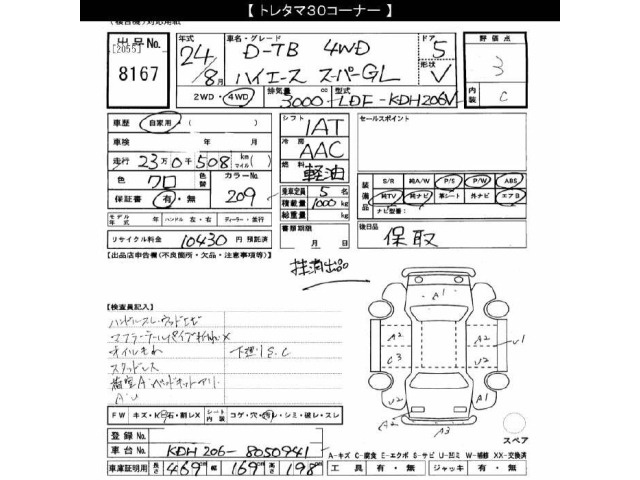 【 トレタマ30コーナー 】
出品No.
[2055]
8167
年式
24年
8月
車名・グレード
D-TB 4WD
ハイエース スーパーGL
ドア
5
形状
V
評価点
3
内装
C
2WD・4WD
排気量
3000cc
型式
LDF-KDH206V
車歴 自家用
車検 年 月
走行 23万0千508 km マイル
色 クロ 色替 カラーNo. 209
保証書 有・無
モデル年式 年 ハンドル 左・右 ディーラー・並行
リサイクル料金 10430 円 預託済
シフト
IAT
冷房
AAC
燃料
軽油
乗車定員 5 名
積載量 1000 kg
総重量 kg
書類期限
月 日
セールスポイント
装備品
S/R 純A/W P/S P/W ABS
純TV 純ナビ 革シート 外ナビ エアB
ナビ型番
後日品
保取
抹消出品
【出品店申告欄(不良箇所・欠品・注意事項等)】
【検査員記入】
オイルもれ
下廻りS.C
スタッドレス
FW キズ・X石・割レX シート内装 コゲ・穴・汚レ・シミ・破レ・スレ
登録No.
車台No. KDH206-8050941
車庫証明 長さ 469cm 幅 169cm 高さ 198cm
A1
A2
A2
C3
C2
U1
U2
A2
A2
A3
スペア
A-キズ C-腐食 E-エクボ S-サビ U-凹ミ W-補修 XX-交換済
工具 有・無 ジャッキ 有・無